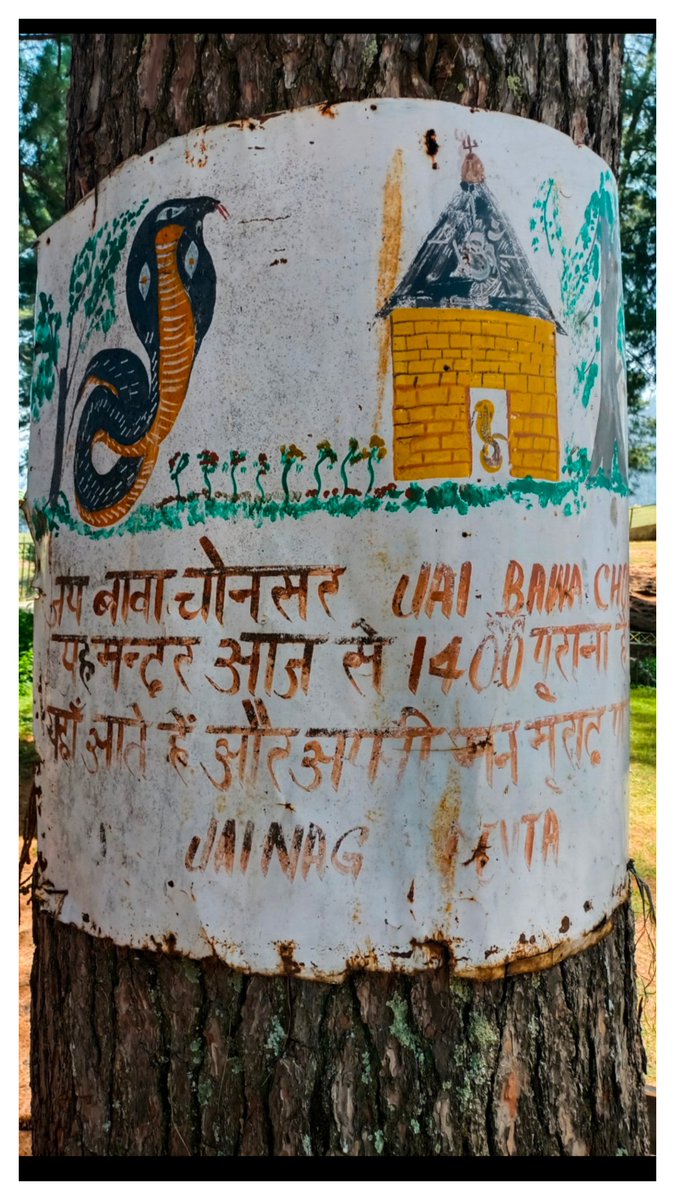 जय बावा चोनसर JAI BAWA CHO
यह मन्दर आज से 1400 पूराना है
यहाँ आते हैं और अपनी मन मूराद
JAI NAG DEVTA